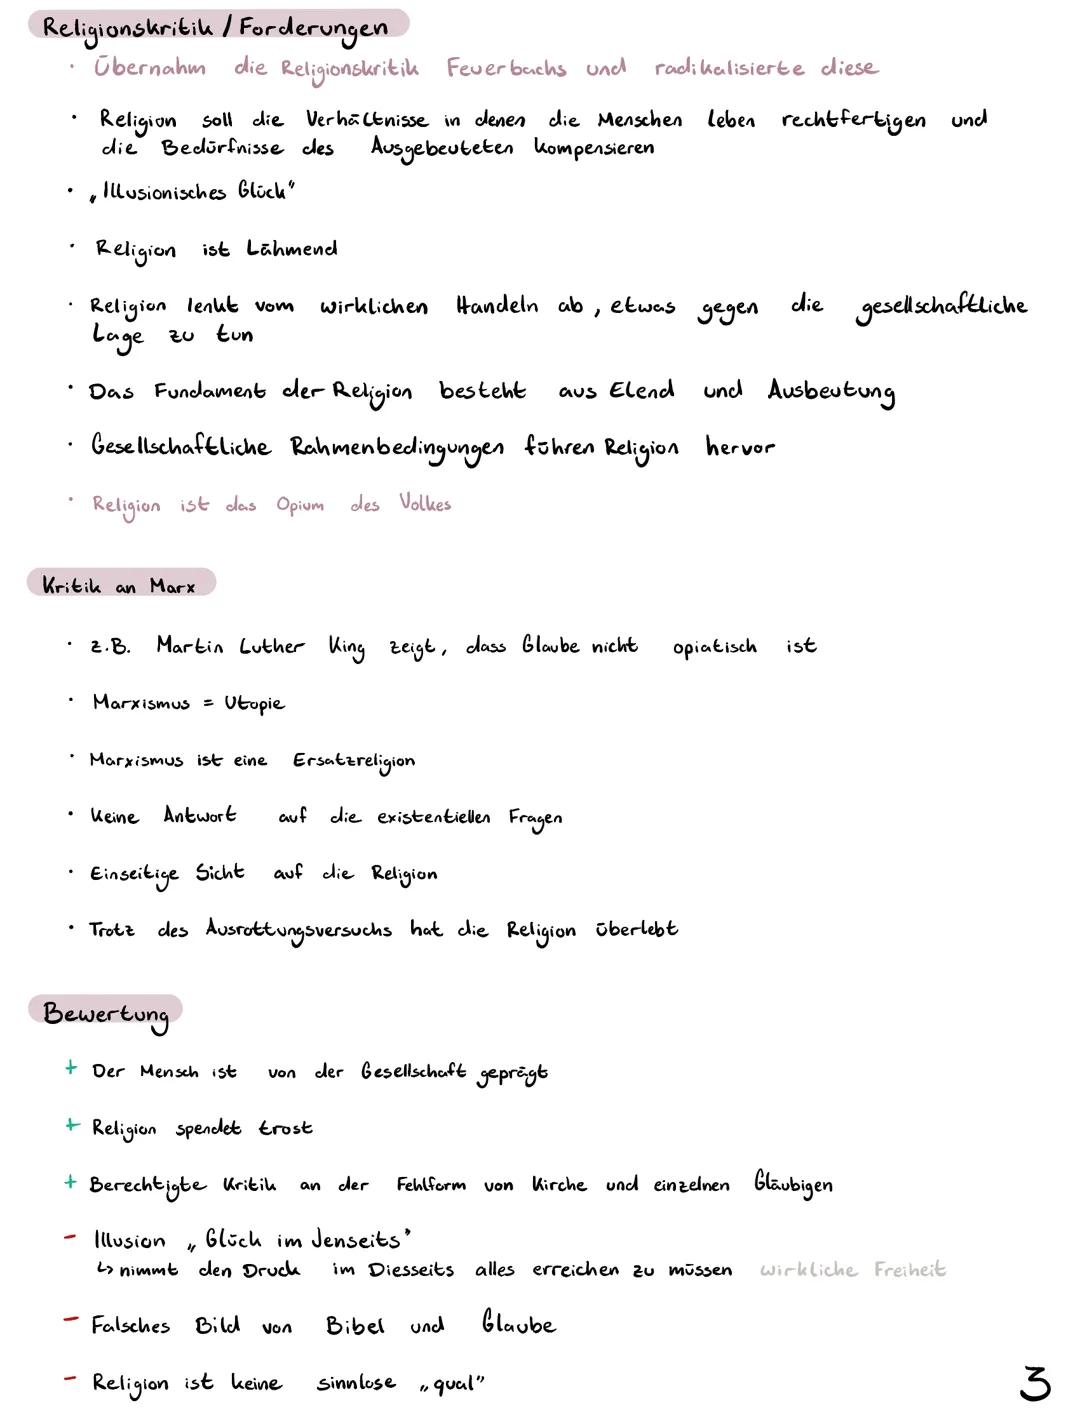 Religionskritik / Forderungen
· Übernahm die Religionskritik Feuerbachs und radikalisierte diese
· Religion soll die Verhältnisse in denen die Menschen leben rechtfertigen und
die Bedürfnisse des Ausgebeuteten kompensieren
· „Illusionisches Glück"
· Religion ist Lähmend
· Religion lenkt vom wirklichen Handeln ab, etwas gegen die gesellschaftliche
Lage zu tun
· Das Fundament der Religion besteht aus Elend und Ausbeutung
· Gesellschaftliche Rahmenbedingungen führen Religion hervor
· Religion ist das Opium des Volkes
Kritik an Marx
· z.B. Martin Luther King zeigt, dass Glaube nicht opiatisch ist
· Marxismus = Utopie
· Marxismus ist eine Ersatzreligion
· Keine Antwort auf die existentiellen Fragen
· Einseitige Sicht auf die Religion
· Trotz des Ausrottungsversuchs hat die Religion überlebt
Bewertung
+ Der Mensch ist von der Gesellschaft geprägt
+ Religion spendet trost
+ Berechtigte Kritik an der Fehlform von Kirche und einzelnen Gläubigen
- Illusion „Glück im Jenseits"
↳ nimmt den Druck im Diesseits alles erreichen zu müssen wirkliche Freiheit
- Falsches Bild von Bibel und Glaube
- Religion ist keine sinnlose „qual"
3